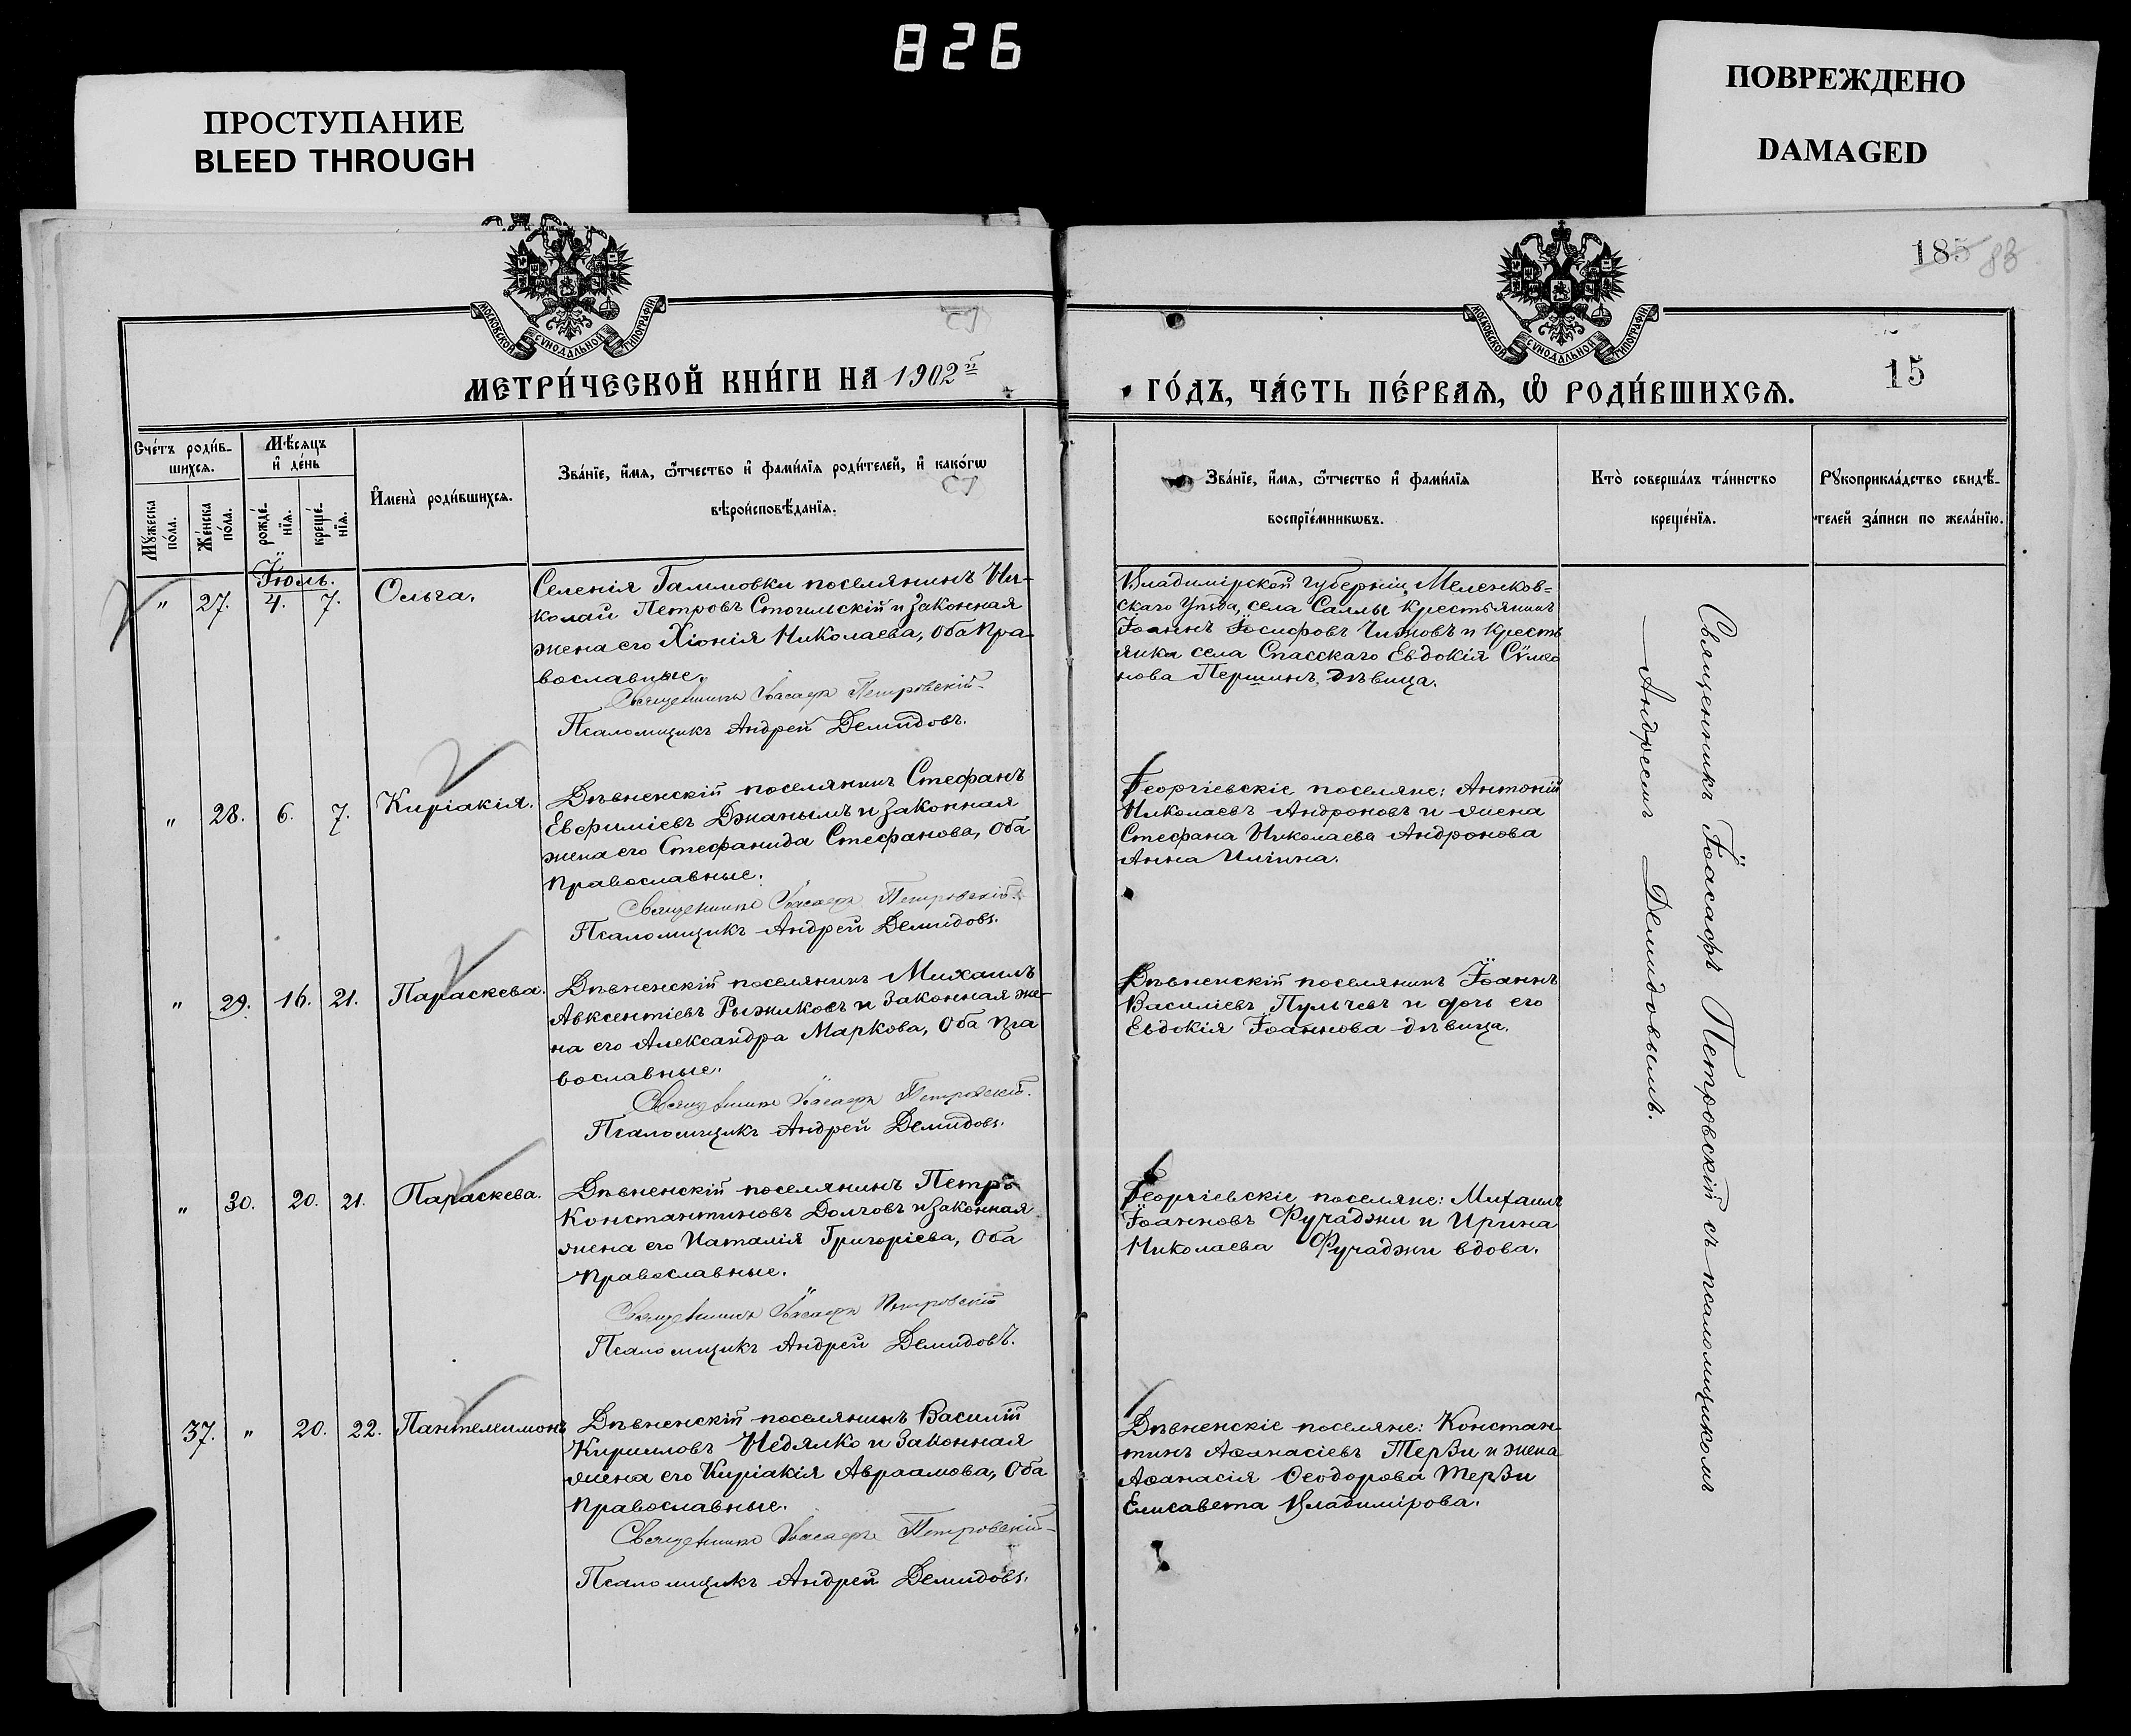 826
ПРОСТУПАНИЕ
BLEED THROUGH
ПОВРЕЖДЕНО
DAMAGED
185 83
МОСКОВСКОЙ СѴНОДАЛЬНОЙ ТИПОГРАФІИ
МОСКОВСКОЙ СѴНОДАЛЬНОЙ ТИПОГРАФІИ
МЕТРИ́ЧЕСКОЙ КНИ́ГИ НА 1902й
ГО́ДЪ, ЧА́СТЬ ПЕ́РВАѦ, Ѡ҆ РОДИ́ВШИХСѦ.
15
Сче́тъ роди́в-
шихся.
Мѣ́сяцъ
и҆ де́нь
Мꙋ́жеска
по́ла.
Же́нска
по́ла.
рожде́-
нїѧ.
креще́-
нїѧ.
И҆мена̀ роди́вшихся.
Зва́нїе, и҆́мѧ, ѻ҆́тчество и҆ фами́лїѧ роди́телей, и҆ како́гѡ
вѣроисповѣ́данїѧ.
Зва́нїе, и҆́мѧ, ѻ҆́тчество и҆ фами́лїѧ
воспрїе́мникѡвъ.
Кто̀ соверша́лъ та́инство
креще́нїѧ.
Рꙋкоприкла́дство свидѣ́-
телей за́писи по жела́нїю.
Іюль.
" 27. 4. 7. Ольга.
Селенія Галиловки поселянинъ Ни-
колай Петровъ Стогильскій и законная
жена его Хіонія Николаева, оба пра-
вославные.
Священникъ Іоасафъ Петровскій
Псаломщикъ Андрей Демидовъ.
Владимірской губерніи, Меленков-
скаго уѣзда, села Саллы крестьянинъ
Іоаннъ Іосифовъ Чижовъ и кресть
янка села Спасскаго Евдокія Сѵмео
нова Першинъ, дѣвица.
" 28. 6. 7. Киріакія.
Дѣвненскій поселянинъ Стефанъ
Евфиміевъ Джанымъ и законная
жена его Стефанида Стефанова, оба
православные.
Священникъ Іоасафъ Петровскій
Псаломщикъ Андрей Демидовъ.
Георгіевскіе поселяне: Антоній
Николаевъ Андроновъ и жена
Стефана Николаева Андронова
Анна Иліина.
" 29. 16. 21. Параскева.
Дѣвненскій поселянинъ Михаилъ
Авксентіевъ Рыжиковъ и законная же-
на его Александра Маркова, оба пра
вославные.
Священникъ Іоасафъ Петровскій.
Псаломщикъ Андрей Демидовъ.
Дѣвненскій поселянинъ Іоаннъ
Василіевъ Пульчевъ и дочь его
Евдокія Іоаннова дѣвица.
" 30. 20. 21. Параскева.
Дѣвненскій поселянинъ Петръ
Константиновъ Долговъ и законная
жена его Наталія Григоріева, оба
православные.
Священникъ Іоасафъ Петровскій
Псаломщикъ Андрей Демидовъ.
Георгіевскіе поселяне: Михаилъ
Іоанновъ Фучаджи и Ирина
Николаева Фучаджи вдова.
37. " 20. 22. Пантелеимонъ
Дѣвненскій поселянинъ Василій
Кирилловъ Недялко и законная
жена его Киріакія Авраамова, оба
православные.
Священникъ Іоасафъ Петровскій
Псаломщикъ Андрей Демидовъ.
Дѣвненскіе поселяне: Констан-
тинъ Аѳанасіевъ Терзи и жена
Аѳанасія Ѳеодорова Терзи
Елисавета Владимірова.
Священникъ Іоасафъ Петровскій съ псаломщикомъ
Андреемъ Демидовымъ.